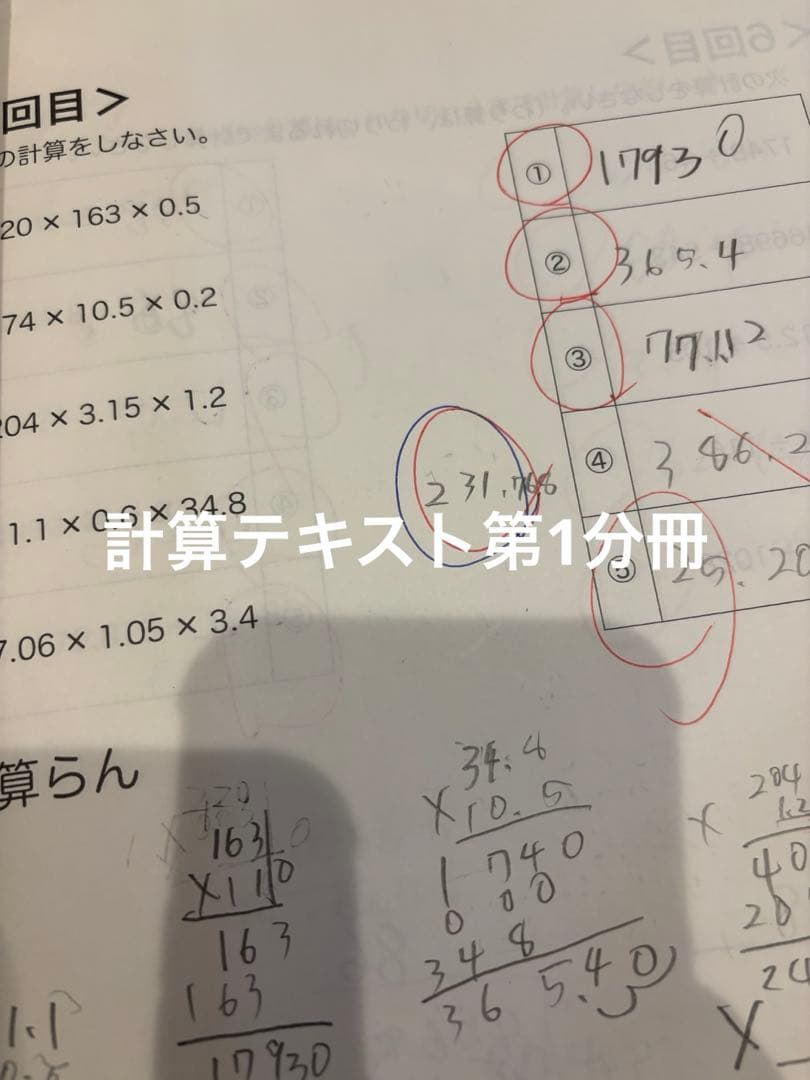 回目>
の計算をしなさい。
20 × 163 × 0.5
74 × 10.5 × 0.2
204 × 3.15 × 1.2
1.1 × 0.6 × 34.8
7.06 × 1.05 × 3.4
① 17930
② 365.4
③ 77.112
④ 386.2
⑤ 25.20
231.768
計算テキスト第1分冊
算らん
163
×110
163
163
17930
34.8
×10.5
1740
000
348
365.40
204
1.2
×
40
20
24
×
1.1